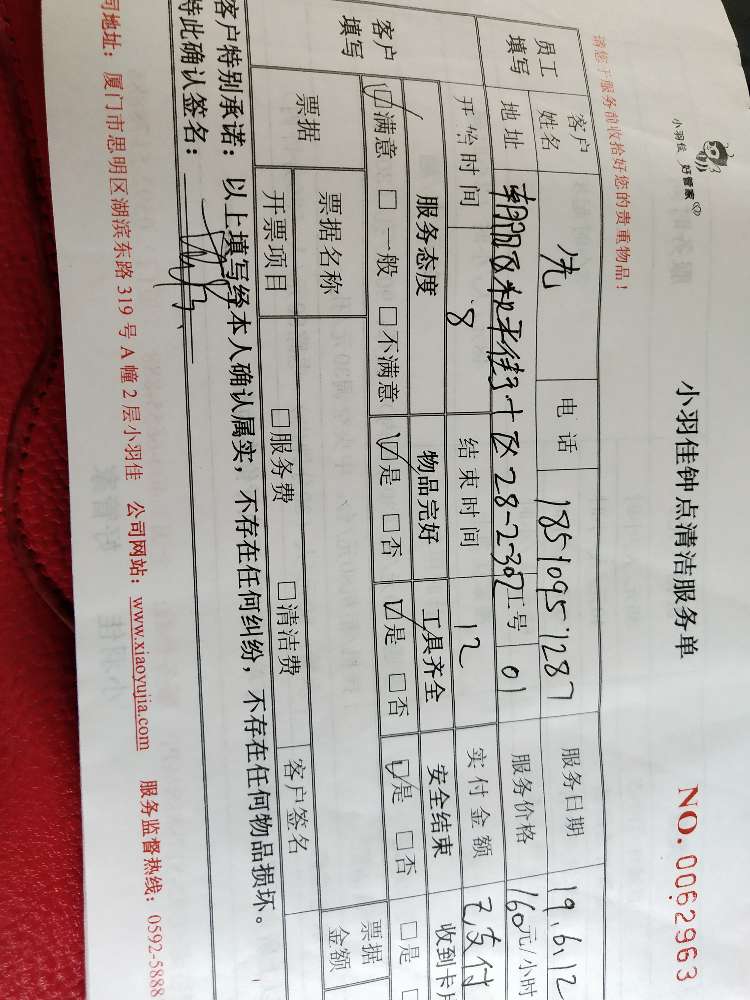 小羽佳 好管家
小羽佳钟点清洁服务单
NO.0062963
请您于服务前收拾好您的贵重物品！
员工填写 客户姓名 先 电话 18510951287 服务日期 19.6.12
地址 朝阳区和平街十区28-2-302 工号 01 服务价格 160元/小时
开始时间 8 结束时间 12 实付金额 已支付
客户填写 服务态度 物品完好 工具齐全 安全结束 收到卡片
☑满意 □一般 □不满意 ☑是 □否 ☑是 □否 ☑是 □否 □是 □
票据 票据名称 票据金额
开票项目 □服务费 □清洁费 客户签名
客户特别承诺：以上填写经本人确认属实，不存在任何纠纷，不存在任何物品损坏。
特此确认签名：
司地址：厦门市思明区湖滨东路319号A幢2层小羽佳 公司网站：www.xiaoyujia.com 服务监督热线：0592-5888